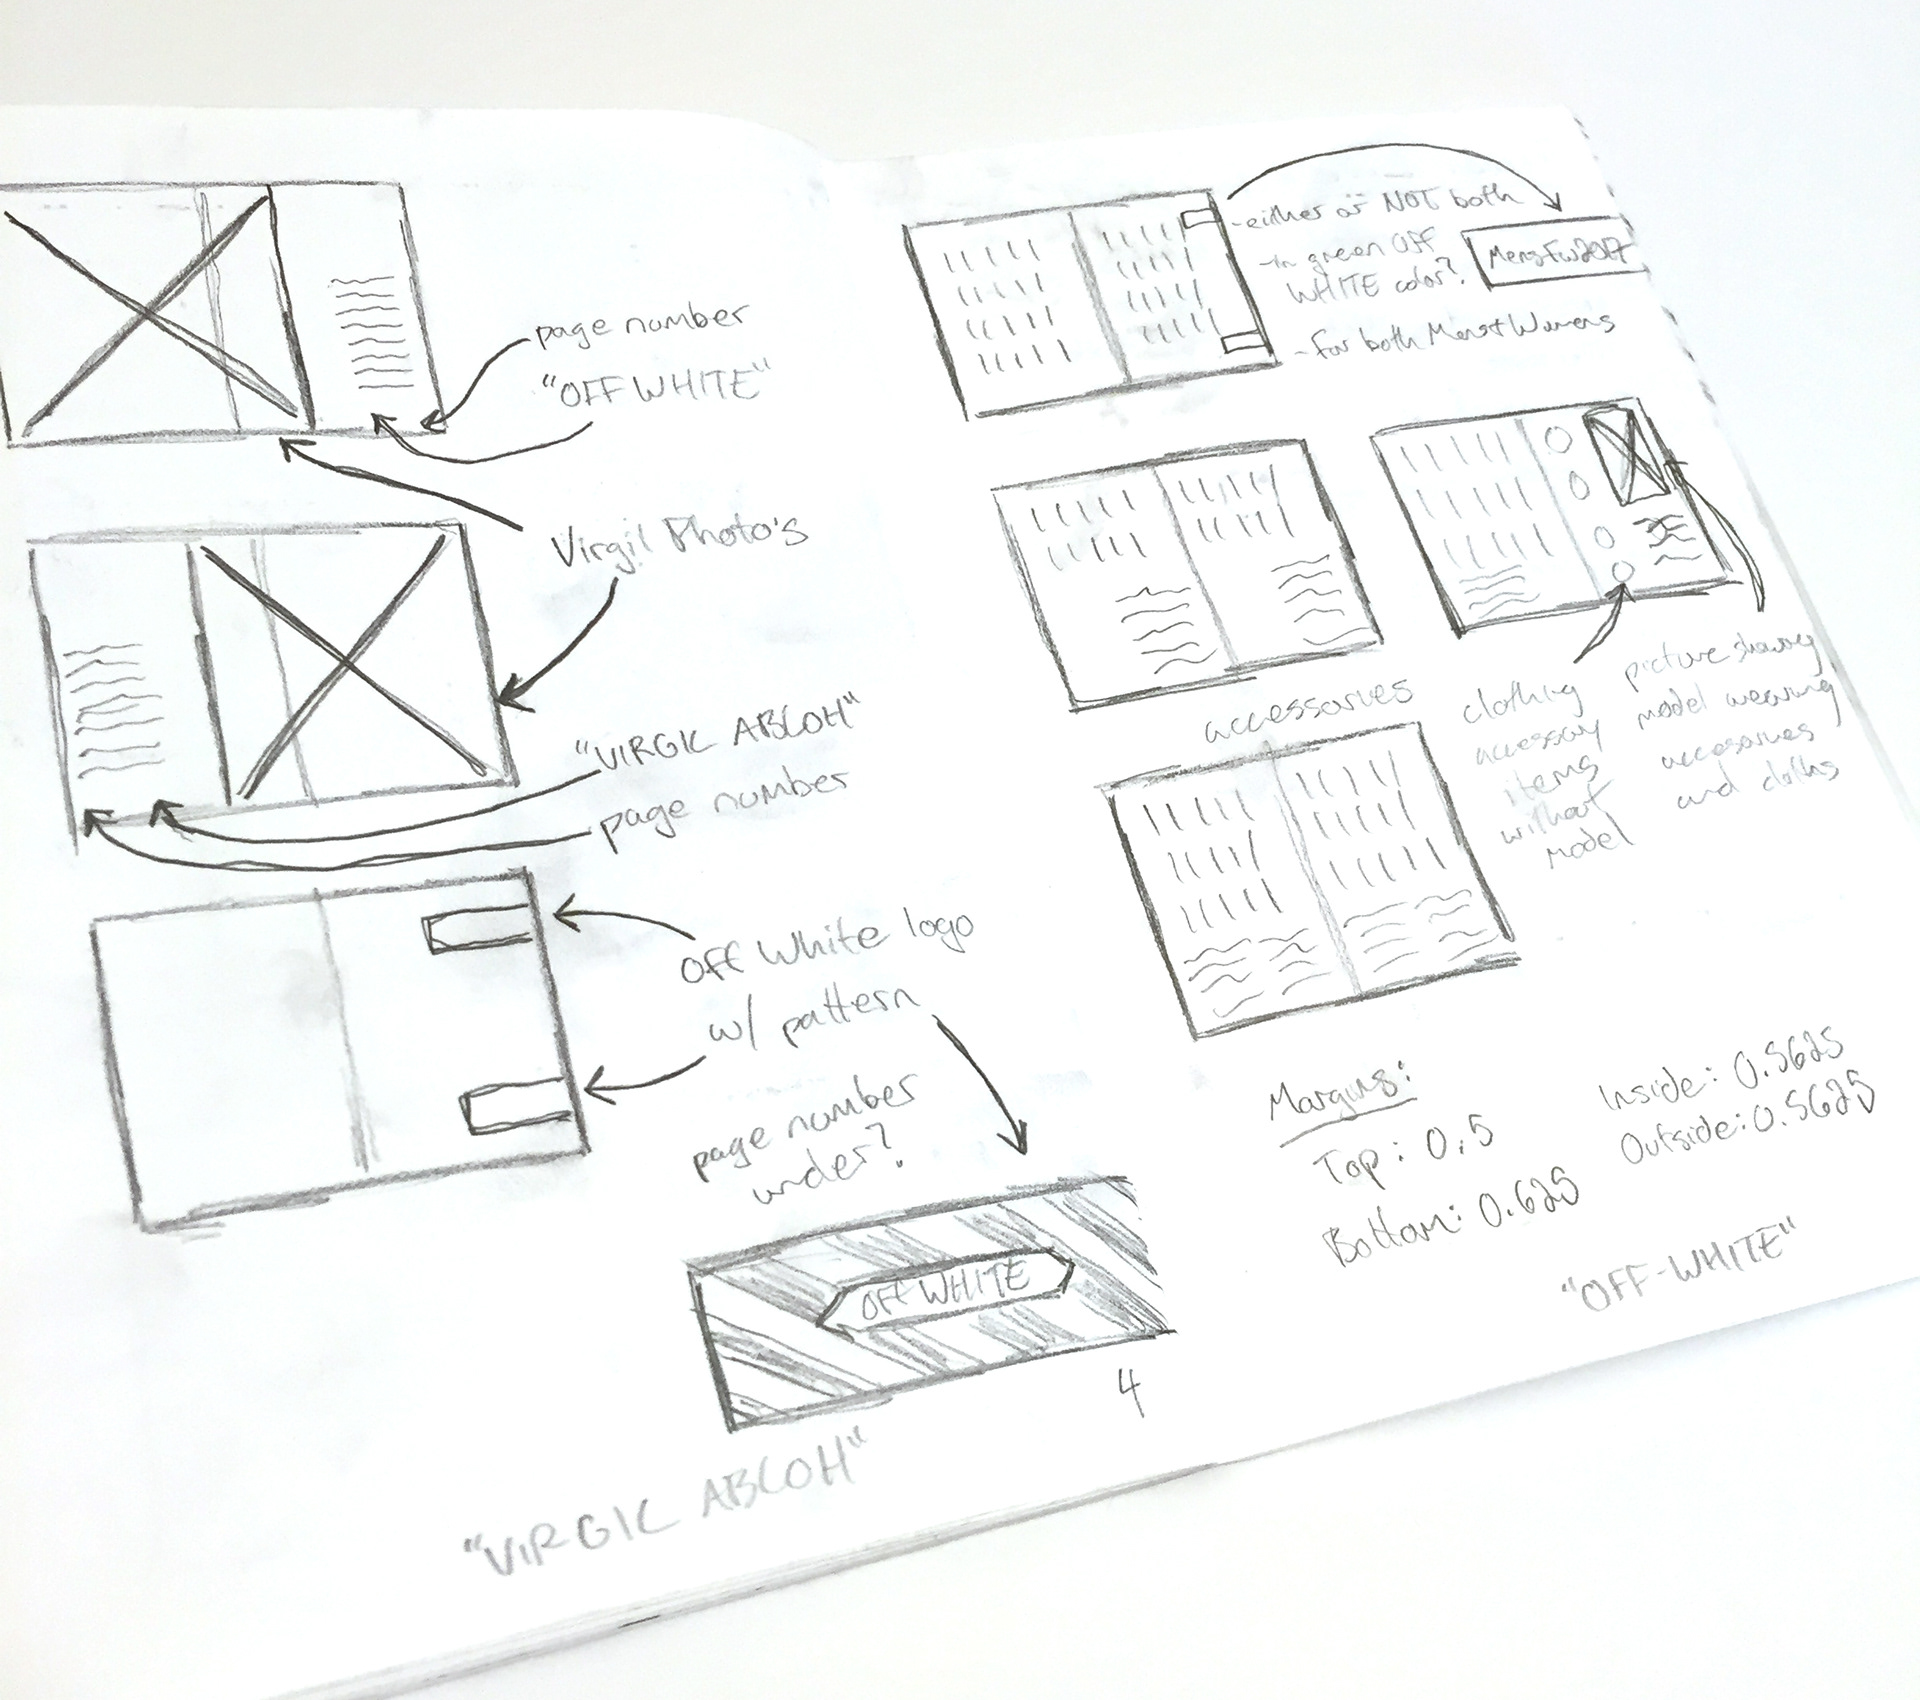 page number
"OFF WHITE"
Virgil Photo's
"VIRGIL ABLOH"
page number
Off White logo
w/ pattern
page number
under?
OFF WHITE
4
"VIRGIL ABLOH"
-either or NOT both
-in green OFF
WHITE color?
-for both Mens+Womens
MensFW2017
accessories
clothing
accessory
items
without
model
picture showing
model wearing
accesories
and cloths
Margins:
Top: 0.5
Bottom: 0.625
Inside: 0.5625
Outside: 0.5625
"OFF-WHITE"